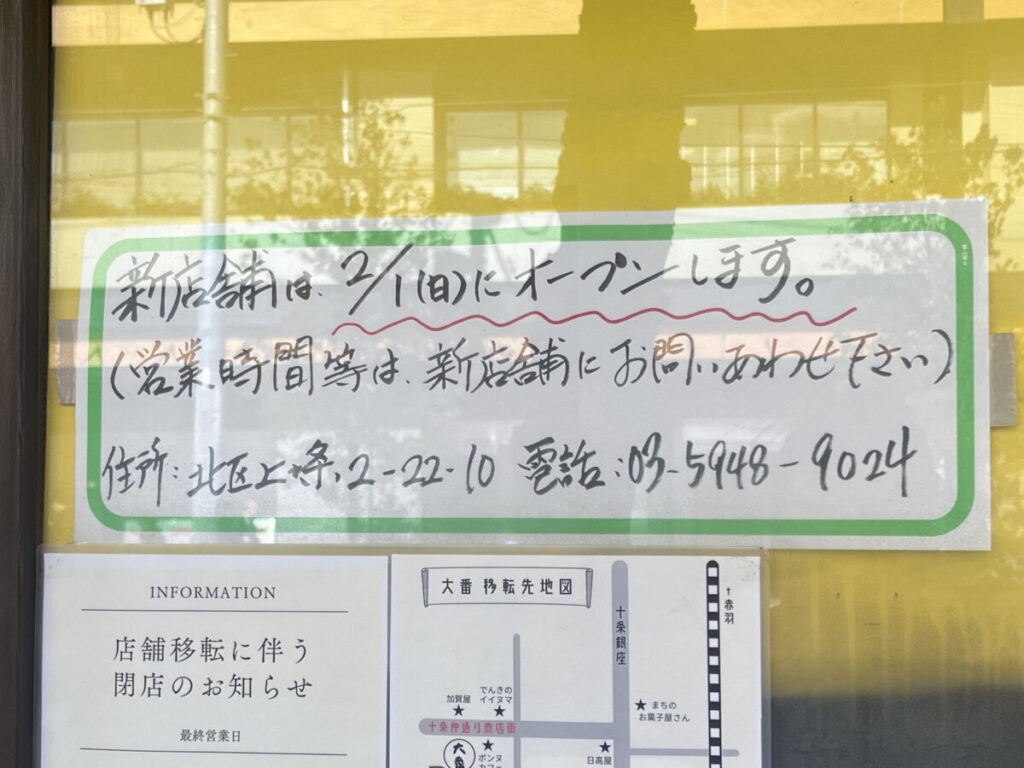 新店舗は、2/1(日)にオープンします。
(営業時間等は、新店舗にお問いあわせ下さい)
住所:北区上十条、2-22-10 電話:03-5948-9024
INFORMATION
店舗移転に伴う
閉店のお知らせ
最終営業日
大番 移転先地図
↑赤羽
十条銀座
加賀屋
でんきの
イイヌマ
まちの
お菓子屋さん
十条仲通り商店街
大番
ボンヌ
カフェ
日高屋